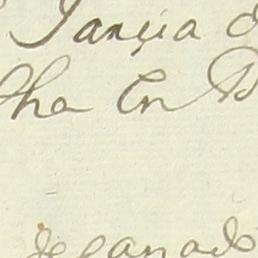 Jançia d
cha En B
de ganado